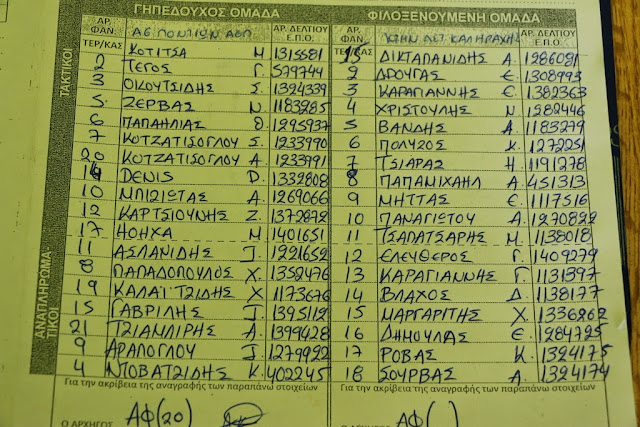 ΓΗΠΕΔΟΥΧΟΣ ΟΜΑΔΑ ΦΙΛΟΞΕΝΟΥΜΕΝΗ ΟΜΑΔΑ
ΑΡ. ΦΑΝ. ΑΡ. ΔΕΛΤΙΟΥ Ε.Π.Ο. ΑΡ. ΦΑΝ. ΑΡ. ΔΕΛΤΙΟΥ Ε.Π.Ο.
ΤΕΡ/ΚΑΣ ΑΕ ΠΟΝΤΙΩΝ ΤΕΡ/ΚΑΣ ΚΑΛΗΡΑΧΗ
ΤΑΚΤΙΚΟΙ
ΚΟΤΙΤΣΑ Μ 1315581 15 ΔΙΚΤΑΠΑΝΙΔΗΣ Α. 1286081
2 ΤΕΓΟΣ Γ. 579744 2 ΔΡΟΥΓΑΣ Ε 1308993
3 ΟΙΚΟΥΤΣΙΔΗΣ Σ. 1324339 3 ΚΑΡΑΓΙΑΝΝΗΣ Ε 1382363
5. ΖΕΡΒΑΣ Ν. 1183285 4 ΧΡΙΣΤΟΥΛΗΣ Ν 1282446
6 ΠΑΠΑΗΛΙΑΣ Θ. 1295937 5 ΒΑΝΔΗΣ Α. 1183279
7 ΚΟΤΖΑΤΙΣΟΓΛΟΥ Σ. 1233990 6 ΠΟΛΥΖΟΣ Κ 1272251
20 ΚΟΤΖΑΤΙΣΟΓΛΟΥ Α. 1233991 7 ΤΣΙΑΡΑΣ Η. 1191278
14 DENIS D. 1332808 8 ΠΑΠΑΜΙΧΑΗΛ Α. 451313
10 ΜΠΙΖΙΩΤΑΣ Α. 1269066 9 ΜΗΤΤΑΣ Ε. 1117516
12 ΚΑΡΤΣΙΟΥΝΗΣ Ζ. 1372872 10 ΠΑΝΑΓΙΩΤΟΥ Α. 1270822
17 ΗΟΗΧΑ Μ 1401651 11 ΤΣΑΠΑΤΣΑΡΗΣ Μ. 1138018
ΑΝΑΠΛΗΡΩΜΑΤΙΚΟΙ
11 ΑΣΛΑΝΙΔΗΣ Ι. 1221652 12 ΕΛΕΥΘΕΡΟΣ Γ. 1409279
8 ΠΑΠΑΔΟΠΟΥΛΟΣ Χ. 1352476 13 ΚΑΡΑΓΙΑΝΝΗΣ Γ. 1131397
19 ΚΑΛΑΪΤΖΙΔΗΣ Χ 1173676 14 ΒΛΑΧΟΣ Δ. 1138177
15 ΓΑΒΡΙΛΗΣ Ι. 1395112 15 ΜΑΡΓΑΡΙΤΗΣ Χ 1336262
21 ΤΖΙΑΜΛΙΡΗΣ Α. 1399428 16 ΔΗΜΟΥΛΑΣ Ε. 1284725
9 ΑΡΑΠΟΓΛΟΥ Ι. 1279922 17 ΡΟΒΑΣ Κ. 1324175
4 ΝΤΟΒΑΤΖΙΔΗΣ Κ. 402245 18 ΣΟΥΡΒΑΣ Α. 1324174
Για την ακρίβεια της αναγραφής των παραπάνω στοιχείων Για την ακρίβεια της αναγραφής των παραπάνω στοιχείων
Ο ΑΡΧΗΓΟΣ ΑΦ(20) ΑΦ( )